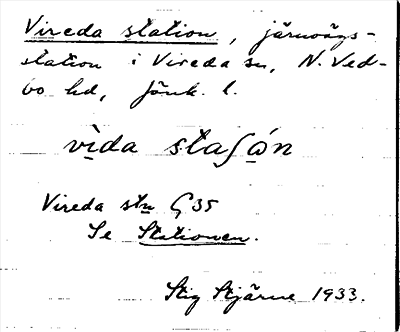 Vireda station, järnvägs-
station i Vireda sn, N. Ved-
bo hd, Jönk. l.
vìda staʃón
Vireda stn G35
Se Stationen.
Stig Stjärne 1933.